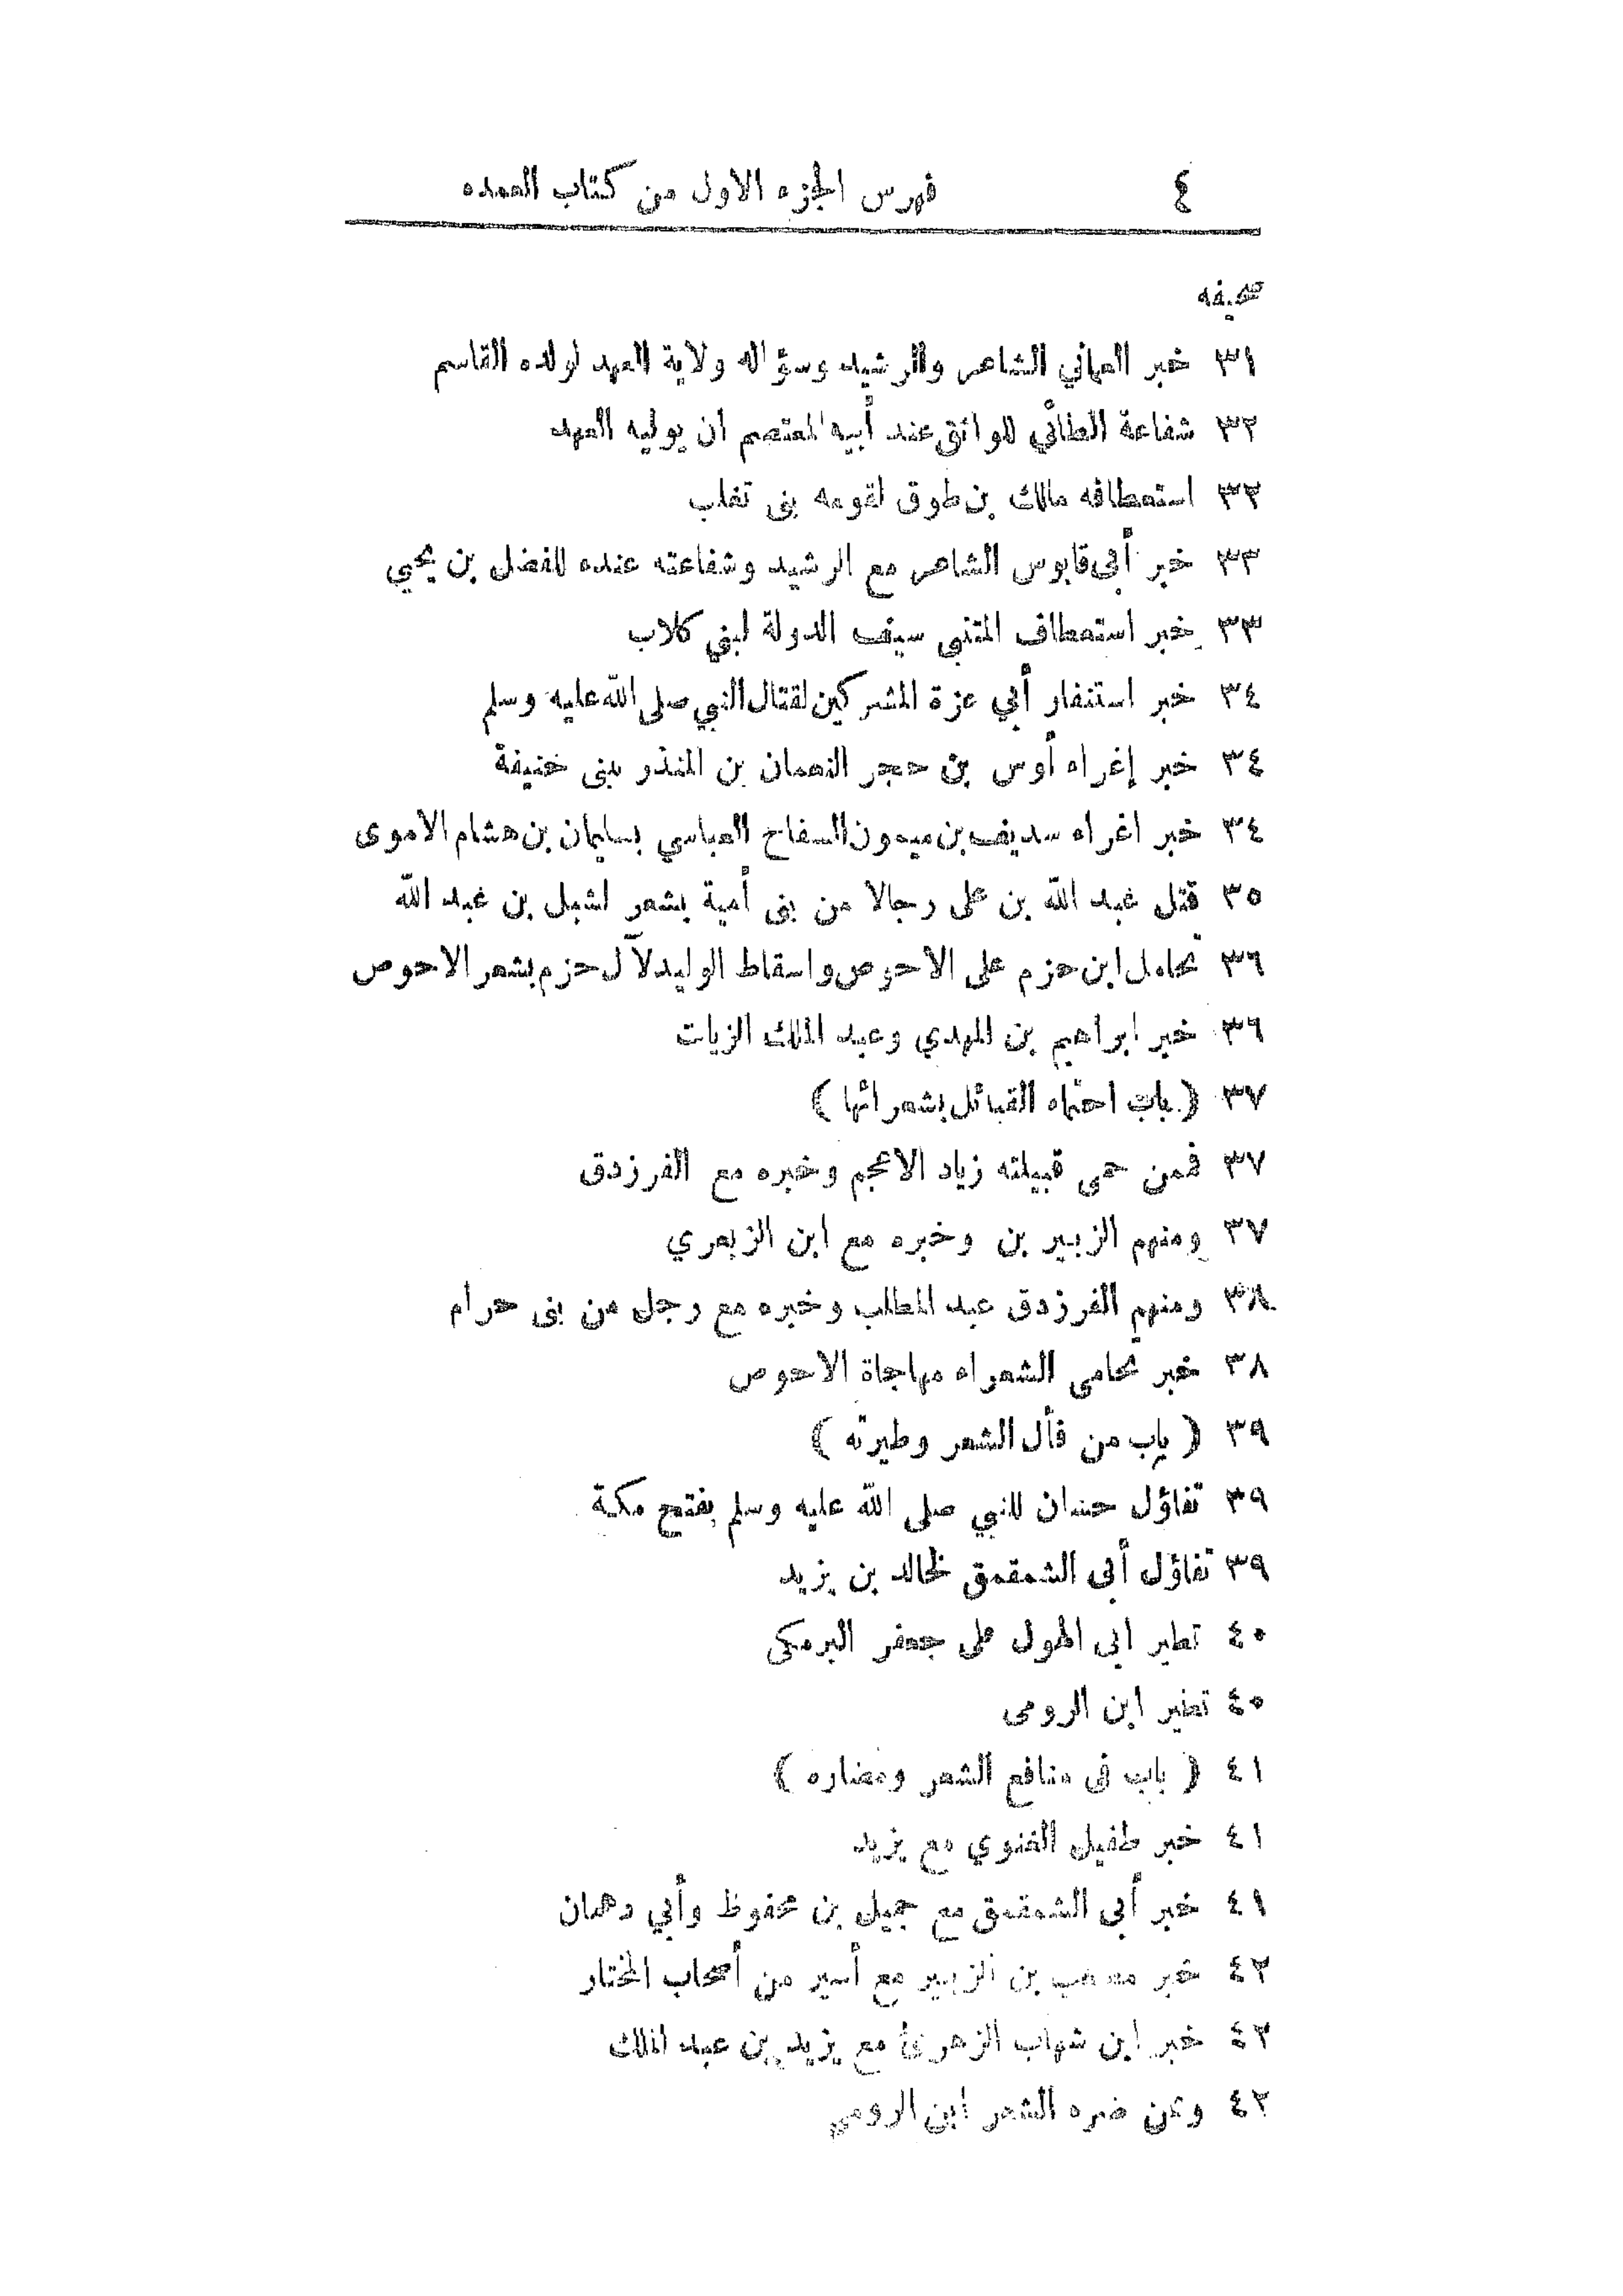 ٤ فهرس الجزء الاول من كتاب العمده
صحيفه
٣١ خبر العماني الشاعر والرشيد وسؤاله ولاية العهد لولده القاسم
٣٢ شفاعة الطائي للواثق عند أبيه المعتصم ان يوليه العهد
٣٢ استعطافه مالك بن طوق لقومه بنى تغلب
٣٣ خبر أبى قابوس الشاعر مع الرشيد وشفاعته عنده للفضل بن يحيي
٣٣ خبر استعطاف المتنبى سيف الدولة لبني كلاب
٣٤ خبر استنفار أبي عزة المشركين لقتال النبي صلى الله عليه وسلم
٣٤ خبر إغراء أوس بن حجر النعمان بن المنذر ببنى حنيفة
٣٤ خبر اغراء سديف بن ميمون السفاح العباسي بسليمان بن هشام الاموى
٣٥ قتل عبد الله بن على رجالا من بنى أمية بشعر لشبل بن عبد الله
٣٦ تحامل ابن حزم على الاحوص واسقاط الوليد لآل حزم بشعر الاحوص
٣٦ خبر ابراهيم بن المهدي وعبد الملك الزيات
٣٧ ( باب احتماء القبائل بشعرائها )
٣٧ فممن حمى قبيلته زياد الاعجم وخبره مع الفرزدق
٣٧ ومنهم الزبير بن وخبره مع ابن الزبعري
٣٨ ومنهم الفرزدق عبد المطلب وخبره مع رجل من بنى حرام
٣٨ خبر تحامى الشعراء مهاجاة الاحوص
٣٩ ( باب من فأل الشعر وطيرته )
٣٩ تفاؤل حسان للنبي صلى الله عليه وسلم بفتح مكة
٣٩ تفاؤل أبى الشمقمق لخالد بن يزيد
٤٠ تطير ابى الهول على جعفر البرمكى
٤٠ تطير ابن الرومى
٤١ ( باب فى منافع الشعر ومضاره )
٤١ خبر طفيل الغنوي مع يزيد
٤١ خبر أبى الشمقمق مع جميل بن محفوظ وأبي دهمان
٤٢ خبر مصعب بن الزبير مع أسير من أصحاب المختار
٤٢ خبر ابن شهاب الزهرى مع يزيد بن عبد الملك
٤٢ وممن ضره الشعر ابن الرومى